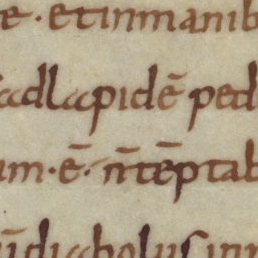 e · et in manib
adlapidē ped
um · ē · n̄ tēptab
diabolus in